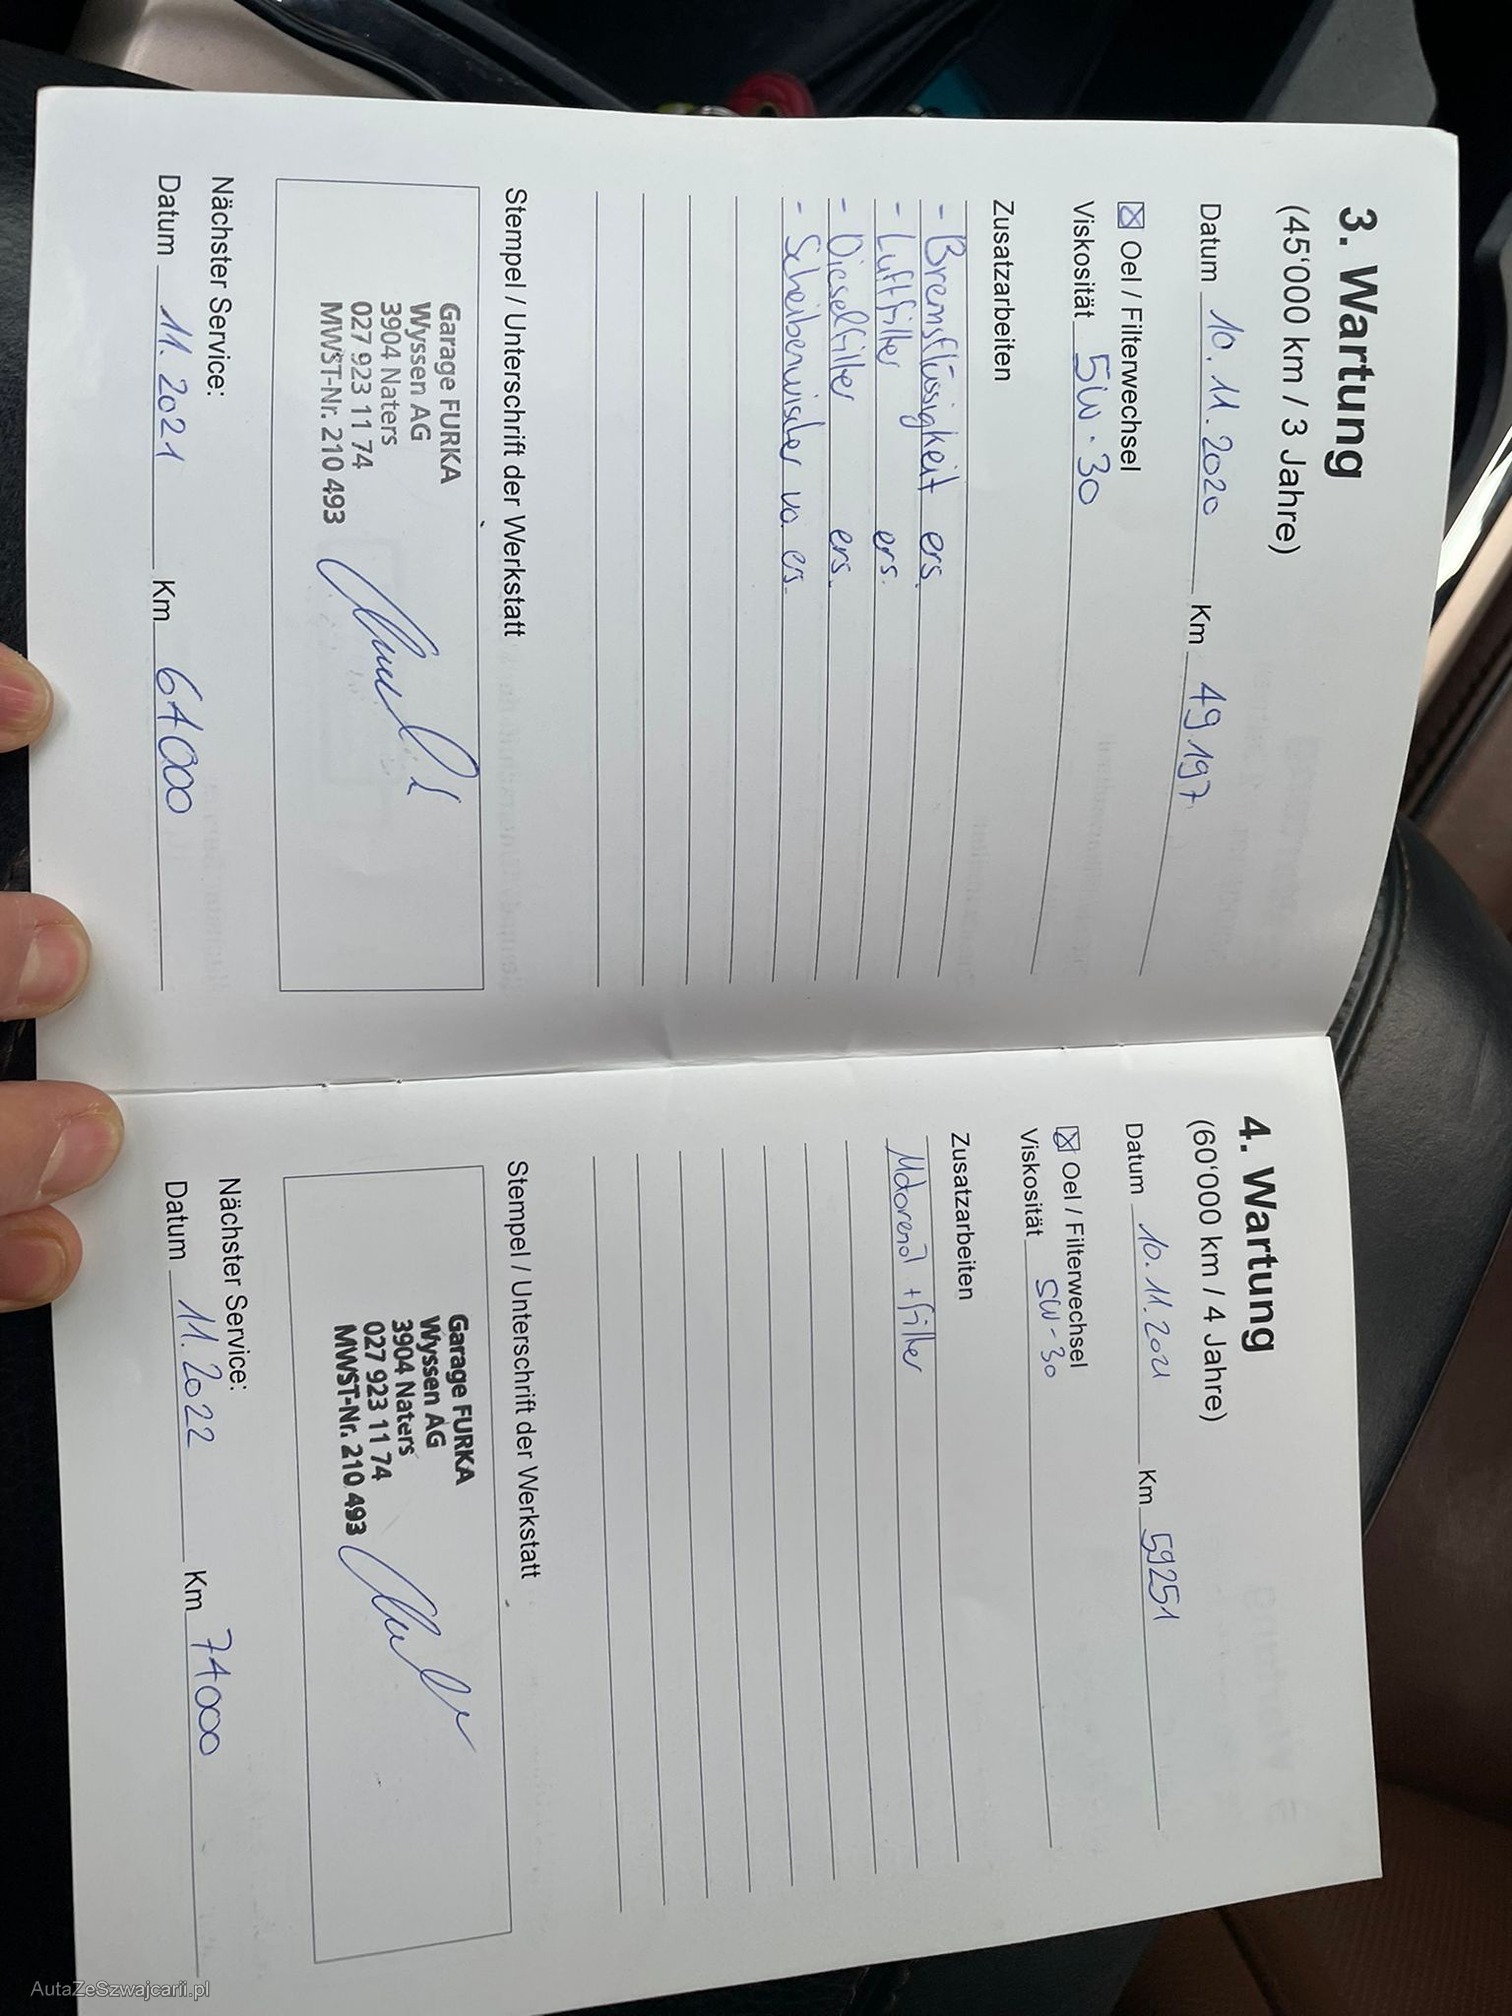 3. Wartung
(45'000 km / 3 Jahre)
Datum 10.11.2020 Km 49197
☒ Oel / Filterwechsel
Viskosität 5W-30
Zusatzarbeiten
- Bremsflüssigkeit ers.
- Luftfilter ers.
- Dieselfilter ers.
- Scheibenwischer vo. ers.
Stempel / Unterschrift der Werkstatt
Garage FURKA
Wyssen AG
3904 Naters
027 923 11 74
MWST-Nr. 210 493
Nächster Service:
Datum 11.2021 Km 64000
4. Wartung
(60'000 km / 4 Jahre)
Datum 10.11.2021 Km 59251
☒ Oel / Filterwechsel
Viskosität 5W-30
Zusatzarbeiten
+ Filter
Stempel / Unterschrift der Werkstatt
Garage FURKA
Wyssen AG
3904 Naters
027 923 11 74
MWST-Nr. 210 493
Nächster Service:
Datum 11.2022 Km 74000
AutaZeSzwajcarii.pl